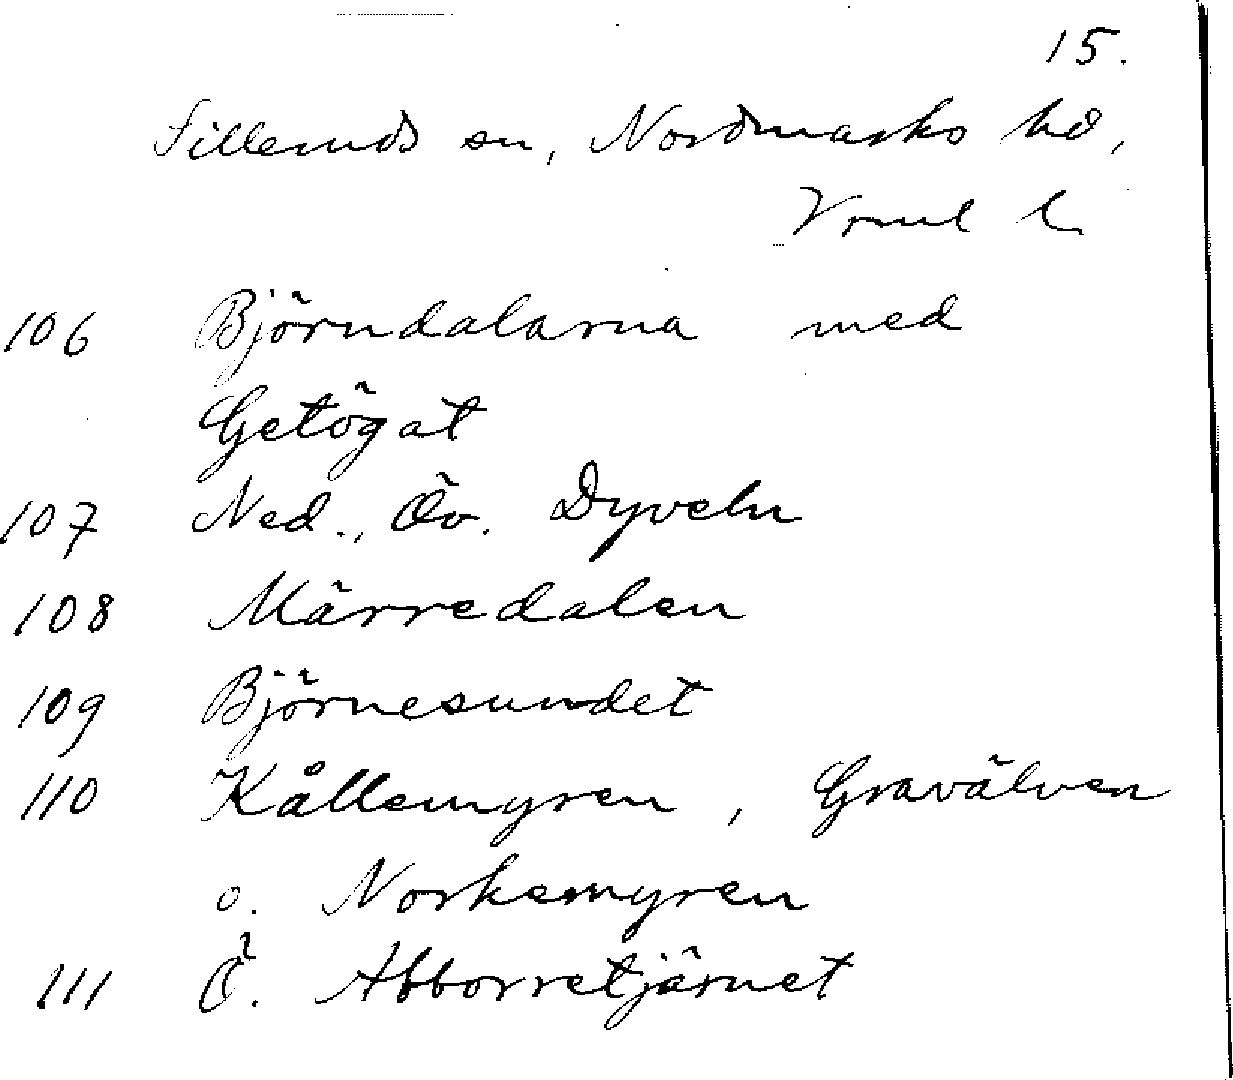 15.
Silleruds sn, Nordmarks hd,
Vrml l
106 Björndalarna med
Getögat
107 Ned., Öv. Dyveln
108 Märredalen
109 Björnesundet
110 Kållemyren, Gravälven
o. Norkemyren
111 Ö. Abborretjärnet